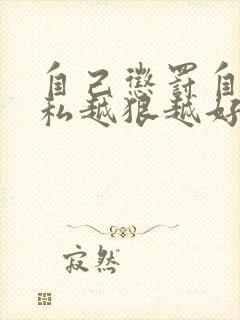 自己懲罰自
私越狠越好
寂然